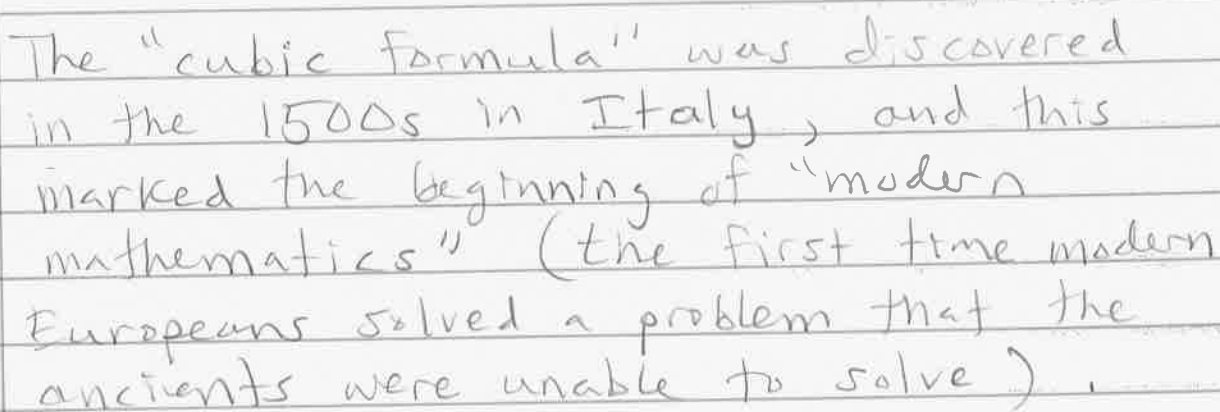 The "cubic formula" was discovered
in the 1500s in Italy, and this
marked the beginning of "modern
mathematics" (the first time modern
Europeans solved a problem that the
ancients were unable to solve).